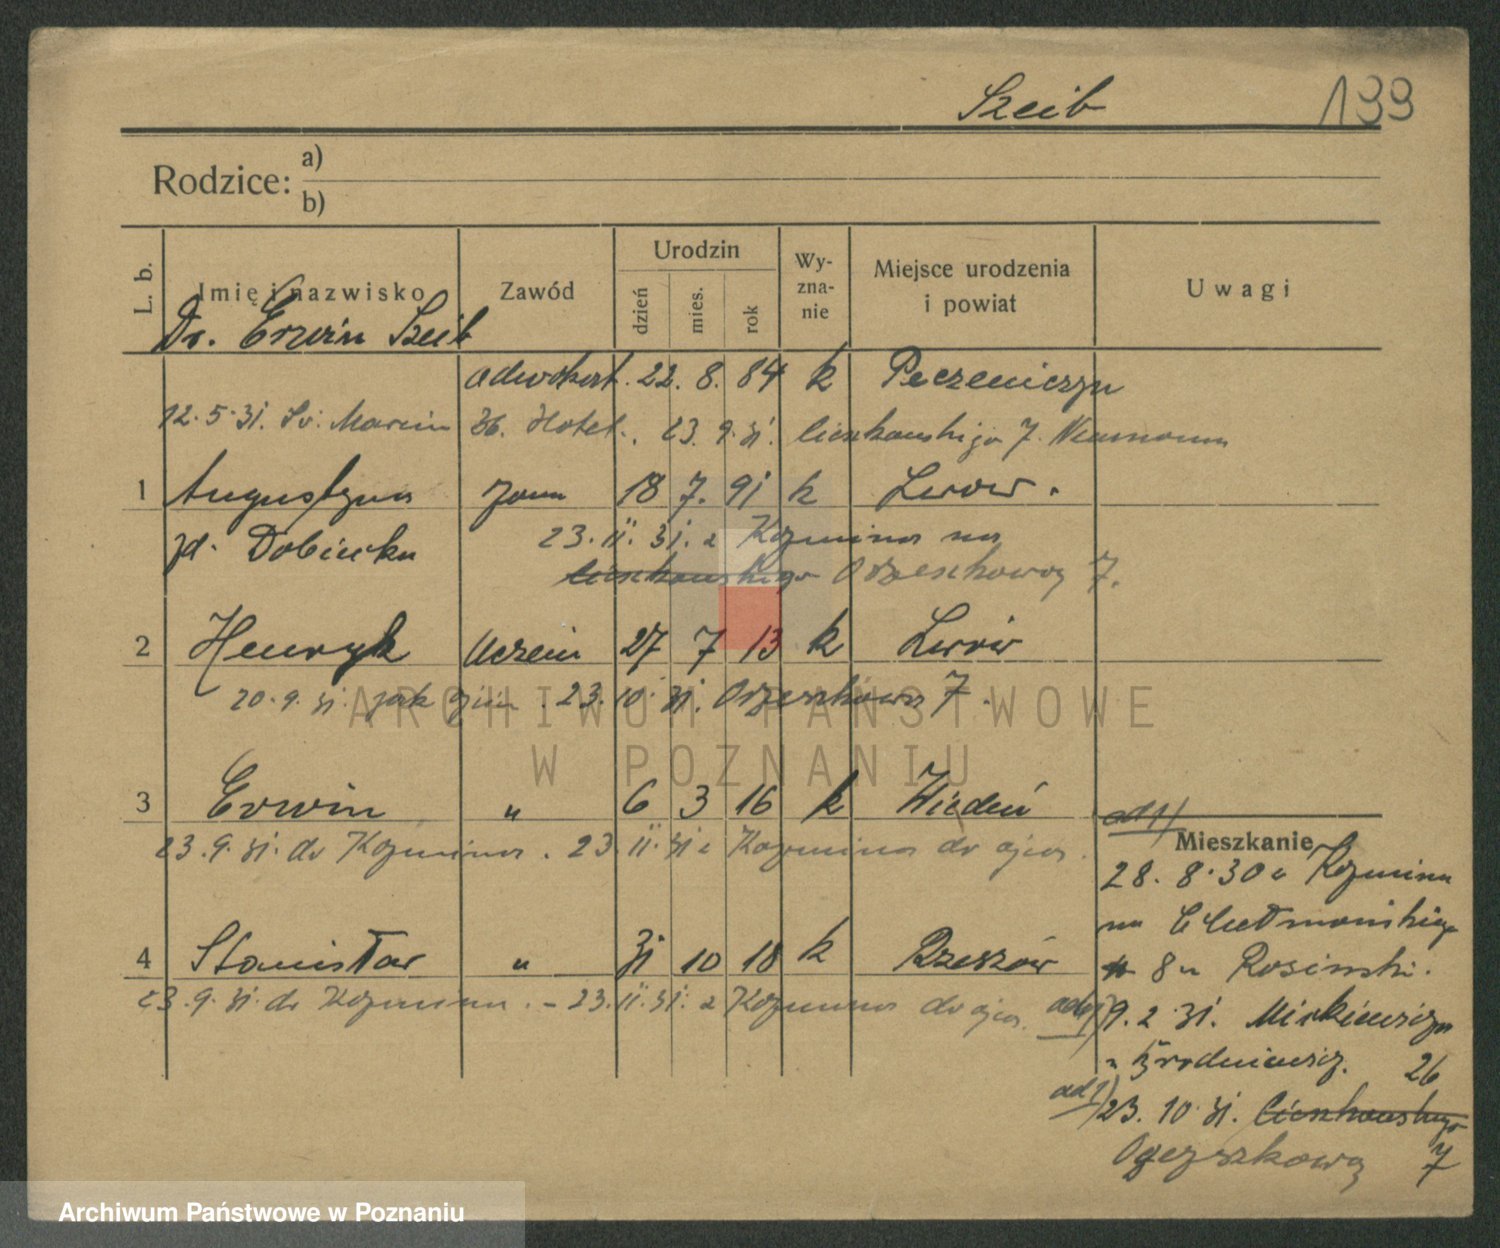 Szeib 199
Rodzice: a)
b)
L. b. Imię i nazwisko Zawód Urodzin dzień mies. rok Wy-zna-nie Miejsce urodzenia i powiat Uwagi
Dr. Erwin Szeib
adwokat. 22. 8. 84 k Peczeniczyn
12. 5. 31. Św. Marcin 36. Hotel. 23. 9. 31. Cieszkowskiego 7. Neumann
1 Augustyna żona 18 7. 91 k Lwow.
zd. Dobiecka 23. 11. 31. z Kozmina na
Cieszkowskiego Orzeszkowej 7.
2 Henryk uczeń 27 7 13 k Lwów
20. 9. 31. jak ojciec. 23. 10. 31. Orzeszkowa 7.
3 Erwin " 6 3 16 k Wiedeń
23. 9. 31. do Kozmina. 23. 11. 31 z Kozmina do ojca.
4 Stanisław " 31 10 18 k Rzeszów
23. 9. 31. do Kozmina. - 23. 11. 31. z Kozmina do ojca.
ad 1)
Mieszkanie
28. 8. 30 z Kozmina
na Chełmońskiego
8 u Rosinski.
ad 1) 9. 2. 31. Mickiewicza
26
ad 1) 23. 10. 31. Cieszkowskiego
Orzeszkowej 7
ARCHIWUM PAŃSTWOWE
W POZNANIU
Archiwum Państwowe w Poznaniu